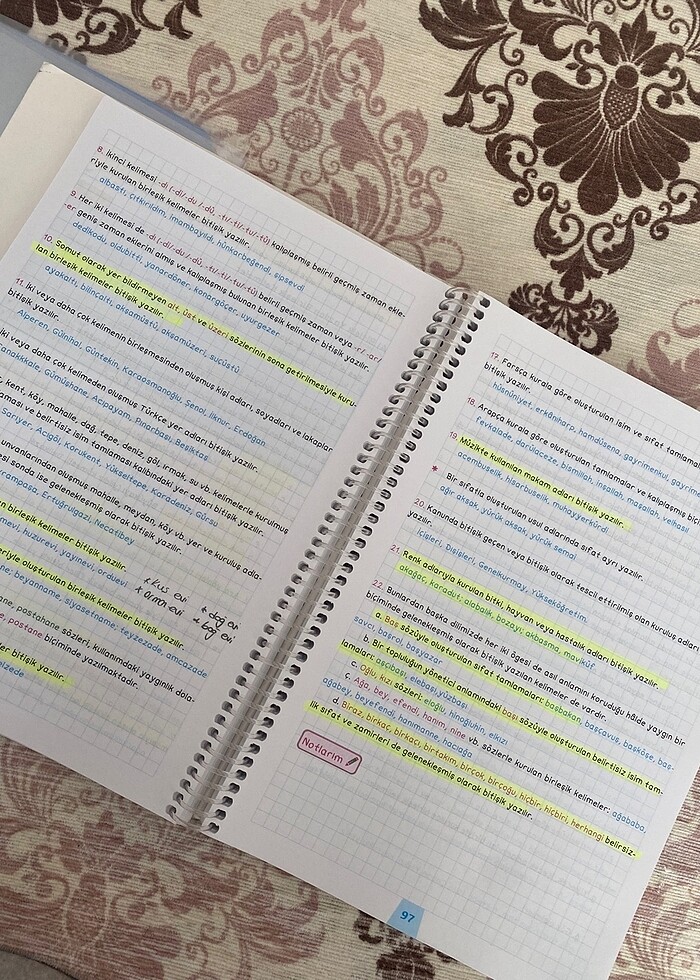 8. İkinci kelimesi -dı (-di/-du /-dü, -tı/-ti/-tu/-tü) kalıplaşmış belirli geçmiş zaman ekle-
riyle kurulan birleşik kelimeler bitişik yazılır.
albastı, çıtkırıldım, imambayıldı, hünkarbeğendi, şıpsevdi
9. Her iki kelimesi de -dı (-di/-du/-dü, -tı/-ti/-tu/-tü) belirli geçmiş zaman veya -r/-ar/
-er geniş zaman eklerini almış ve kalıplaşmış bulunan birleşik kelimeler bitişik yazılır.
dedikodu, oldubitti, yanardöner, konargöçer, uyurgezer
10. Somut olarak yer bildirmeyen alt, üst ve üzeri sözlerinin sona getirilmesiyle kuru-
lan birleşik kelimeler bitişik yazılır.
ayakaltı, bilinçaltı, akşamüstü, akşamüzeri, suçüstü
11. İki veya daha çok kelimenin birleşmesinden oluşmuş kişi adları, soyadları ve lakaplar
bitişik yazılır.
Alperen, Gülnihal, Güntekin, Karaosmanoğlu, Şenol, İlknur, Erdoğan
iki veya daha çok kelimeden oluşmuş Türkçe yer adları bitişik yazılır.
Çanakkkale, Gümüşhane, Acıpayam, Pınarbaşı, Beşiktaş
kent, köy, mahalle, dağ, tepe, deniz, göl, ırmak, su vb. kelimelerle kurulmuş
laması ve belirtisiz isim tamlaması kalıbındaki yer adları bitişik yazılır.
Sarıyer, Acıgöl, Korukent, Yükseltepe, Karadeniz, Gürsu
unvanlarından oluşmuş mahalle, meydan, köy vb. yer ve kuruluş adla-
esi sonda ise gelenekleşmiş olarak bitişik yazılır.
Bayrampaşa, Ertuğrulgazi, Necatibey
birleşik kelimeler bitişik yazılır.
huzurevi, yayınevi, orduevi
+ kuş evi
+ orman evi
+ dağ evi
+ bağ evi
leriyle oluşturulan birleşik kelimeler bitişik yazılır.
beyanname, siyasetname; teyzezade, amcazade
postahane sözleri, kullanımdaki yaygınlık dola-
postane biçiminde yazılmaktadır.
ler bitişik yazılır.
17. Farsça kurala göre oluşturulan isim ve sıfat tamlama
bitişik yazılır.
hüsnüniyet, erkânıharp, hamdüsena, gayrimenkul, gayrim
18. Arapça kurala göre oluşturulan tamlamalar ve kalıplaşmış bi
fevkalade, darülaceze, bismillah, inşallah, maşallah, velhası
19. Müzikte kullanılan makam adları bitişik yazılır.
acembuselik, hisarbuselik, muhayyerkürdi
* Bir sıfatla oluşturulan usul adlarında sıfat ayrı yazılır.
ağır aksak, yürük aksak, yürük semai
20. Kanunda bitişik geçen veya bitişik olarak tescil ettirilmiş olan kuruluş adları
yazılır.
İçişleri, Dışişleri, Genelkurmay, Yükseköğretim
21. Renk adlarıyla kurulan bitki, hayvan veya hastalık adları bitişik yazılır.
akağaç, karadut, alabalık, bozayı, akbasma, mavıküf
22. Bunlardan başka dilimizde her iki ögesi de asıl anlamını koruduğu hâlde yaygın bir
biçiminde gelenekleşmiş olarak bitişik yazılan kelimeler de vardır.
a. Baş sözüyle oluşturulan sıfat tamlamaları: başbakan, başçavuş, başköşe, baş-
savcı, başrol, başyazar
b. Bir topluluğun yöneticisi anlamındaki başı sözüyle oluşturulan belirtisiz isim tam-
lamaları: aşçıbaşı, elebaşı,yüzbaşı
c. Oğlu, kızı sözleri: eloğlu, hinoğluhin, elkızı
ç. Ağa, bey, efendi, hanım, nine vb. sözlerle kurulan birleşik kelimeler: ağababa,
ağabey, beyefendi, hanımanne, hacıağa
d. Biraz, birkaç, birkaçı, birtakım, birçok, birçoğu, hiçbir, hiçbiri, herhangi belirsiz-
lik sıfat ve zamirleri de gelenekleşmiş olarak bitişik yazılır.
Notlarım
97